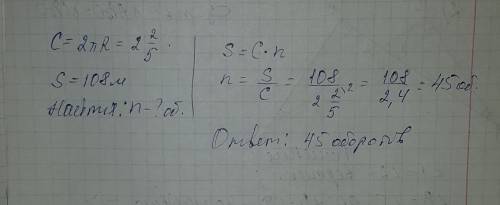 C = 2πR = 2 2/5 .
S = 108 м
Найти: n - ? об.
S = C · n
n = S/C = 108 / 2 2/5 = 108 / 2,4 = 45 об.
Ответ: 45 оборотов